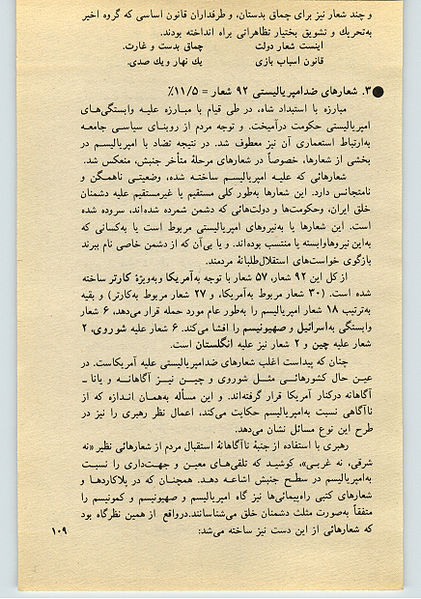 و چند شعار نیز برای چماق بدستان، و طرفداران قانون اساسی که گروه اخیر
به‌تحریك و تشویق بختیار تظاهراتی براه انداخته بودند.
اینست شعار دولت چماق بدست و غارت.
قانون اسباب بازی یك نهار و یك صدی.
●۳. شعارهای ضدامپریالیستی ۹۲ شعار = ۱۱/۵٪
مبارزه با استبداد شاه، در طی قیام با مبارزه علیه وابستگی‌های
امپریالیستی حکومت درآمیخت. و توجه مردم از روبنای سیاسی جامعه
به‌ارتباط استعماری آن نیز معطوف شد. در نتیجه تضاد با امپریالیسم در
بخشی از شعارها، خصوصاً در شعارهای مرحلهٔ متأخر جنبش، منعکس شد.
شعارهائی که علیه امپریالیسم ساخته شده، وضعیتی ناهمگن و
نامتجانس دارد. این شعارها به‌طور کلی مستقیم یا غیرمستقیم علیه دشمنان
خلق ایران، وحکومت‌ها و دولت‌هائی که دشمن شمرده شده‌اند، سروده شده
است. این شعارها یا به‌نیروهای امپریالیستی مربوط است یا به‌کسانی که
به‌این نیروهاوابسته یا منتسب بوده‌اند. و یا بی‌آن که از دشمن خاصی نام ببرند
بازگوی خواست‌های استقلال‌طلبانهٔ مردمند.
از کل این ۹۲ شعار، ۵۷ شعار با توجه به‌آمریکا وبه‌ویژهٔ کارتر ساخته
شده است. (۳۰ شعار مربوط به‌آمریکا، و ۲۷ شعار مربوط به‌کارتر) و بقیه
به‌ترتیب ۱۸ شعار امپریالیسم را به‌طور عام مورد حمله قرار می‌دهد، ۶ شعار
وابستگی به‌اسرائیل و صهیونیسم را افشا می‌کند. ۶ شعار علیه شوروی، ۲
شعار علیه چین و ۲ شعار نیز علیه انگلستان است.
چنان که پیداست اغلب شعارهای ضدامپریالیستی علیه آمریکاست. در
عین حال کشورهائی مثل شوروی و چین نیز آگاهانه و یانا ـ
آگاهانه درکنار آمریکا قرار گرفته‌اند. و این مسأله به‌همان اندازه که از
ناآگاهی نسبت به‌امپریالیسم حکایت می‌کند، اعمال نظر رهبری را نیز در
طرح این نوع مسائل نشان می‌دهد.
رهبری با استفاده از جنبهٔ ناآگاهانهٔ استقبال مردم از شعارهائی نظیر «نه
شرقی، نه غربی»، کوشید که تلقی‌های معین و جهت‌داری را نسبت
به‌امپریالیسم در سطح جنبش اشاعه دهد. همچنان که در پلاکاردها و
شعارهای کتبی راه‌پیمائی‌ها نیز گاه امپریالیسم و صهیونیسم و کمونیسم را
متفقاً به‌صورت مثلث دشمنان خلق می‌شناسانند.درواقع از همین نظرگاه بود
که شعارهائی از این دست نیز ساخته می‌شد:
۱۰۹